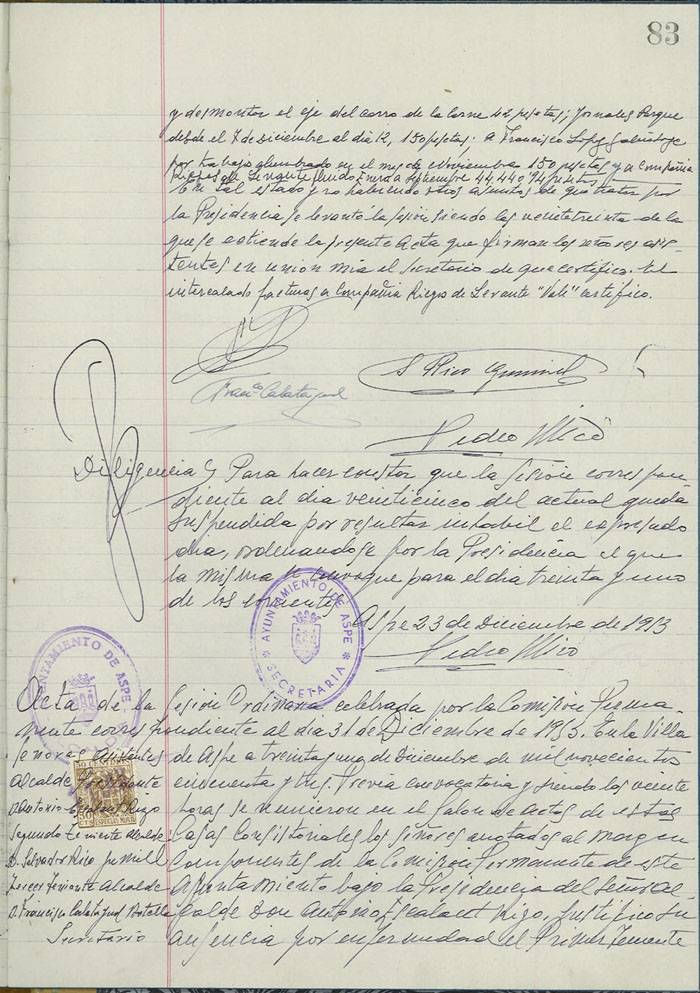 83
y desmontar el eje del carro de la Carne 42 pesetas; Jornales Parque
desde el 7 de Diciembre al dia 12, 150 pesetas; a Francisco Lopez
por trabajos alumbrado en el mes de Noviembre 150 pesetas y a Compañia
Riegos de Levante fluido Enero a Septiembre 44,440'74 pesetas
En tal estado y no habiendo otros asuntos de que tratar por
la Presidencia se levantó la sesion siendo las veintetreinta de la
que se extiende la presente Acta que firman los señores asis-
tentes en union mia el Secretario de que certifico. El
intercalado facturas a Compañia Riegos de Levante "Vale" certifico.
Franco Calatayud
S Rico
Pedro Micó
Diligencia Para hacer constar que la sesion correspon-
diente al dia veinticinco del actual queda
suspendida por resultar inhabil el expresado
dia, ordenandose por la Presidencia el que
la misma se convoque para el dia treinta y uno
de los corrientes
Aspe 23 de Diciembre de 1953
Pedro Micó
AYUNTAMIENTO DE ASPE
SECRETARIA
AYUNTAMIENTO DE ASPE
Acta de la Sesion Ordinaria celebrada por la Comision Perma-
nente correspondiente al dia 31 de Diciembre de 1953. En la Villa
señores asistentes de Aspe a treinta y uno de Diciembre de mil novecientos
Alcalde Presidente cincuenta y tres. Previa convocatoria y siendo las veinte
D. Antonio Rizo horas se reunieron en el Salon de Actos de estas
Segundo Teniente Alcalde Casas Consistoriales los señores anotados al margen
D. Salvador Rico Jumill componentes de la Comision Permanente de este
Tercer Teniente Alcalde Ayuntamiento bajo la Presidencia del Señor Al-
D. Francisco Calatayud Botella calde Don Antonio Rizo, Justificó su
Secretario ausencia por enfermedad el Primer Teniente
50 CTS
ESPECIAL MOVIL